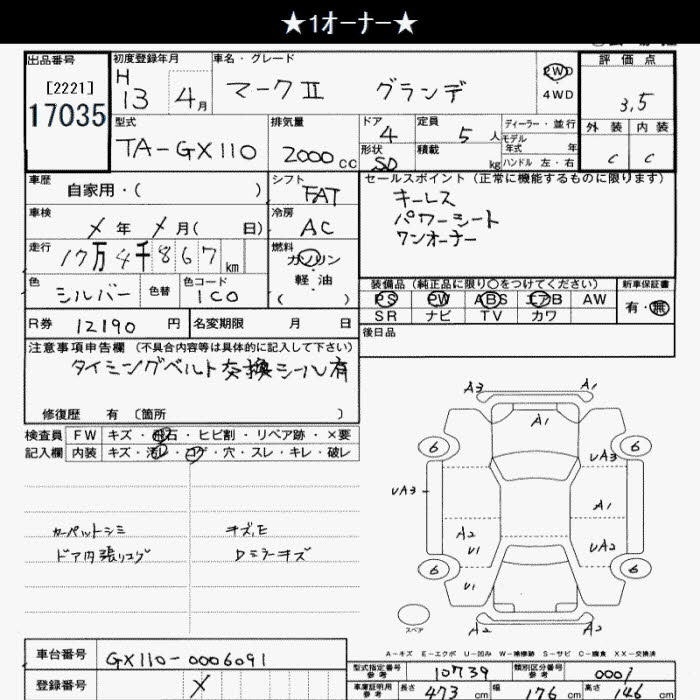 ★1オーナー★
出品番号
[2221]
17035
初度登録年月
H
13 4月
車名・グレード
マークⅡ グランデ
2WD
4WD
評価点
3.5
外装 内装
C C
型式
TA-GX110
排気量
2000cc
ドア
4
定員
5人
形状
SD
積載
kg
ディーラー・並行
モデル
年式 年
ハンドル 左・右
車歴
自家用・( )
シフト
FAT
セールスポイント (正常に機能するものに限ります)
キーレス
パワーシート
ワンオーナー
車検
X年 X月( 日)
冷房
AC
走行
17万4千867km
燃料
ガソリン
軽油
( )
色
シルバー
色替
色コード
1C0
装備品 (純正品に限り○をつけてください)
PS PW ABS エアB AW
SR ナビ TV カワ
新車保証書
有・無
R券 12190 円
名変期限 月 日
後日品
注意事項申告欄 (不具合内容等は具体的に記入して下さい)
タイミングベルト交換シール有
修復歴 有 〔箇所 〕
検査員
記入欄
FW キズ・飛石・ヒビ割・リペア跡・×要
内装 キズ・汚レ・コゲ・穴・スレ・キレ・破レ
カーペットシミ
ドア内張りコゲ
キズ,E
Dミラーキズ
A3 A1
A1
6 6
UA3
UA3
A1
A2
U1
UA2
6 6
U1
スペア
A2 A2
A-キズ E-エクボ U-凹み W-補修跡 S-サビ C-腐食 XX-交換済
車台番号
GX110-0006091
登録番号
X
型式指定番号
参考
10739
類別区分番号
参考
0001
車庫証明用
参考
長さ 473 cm
幅 176 cm
高さ 146 cm